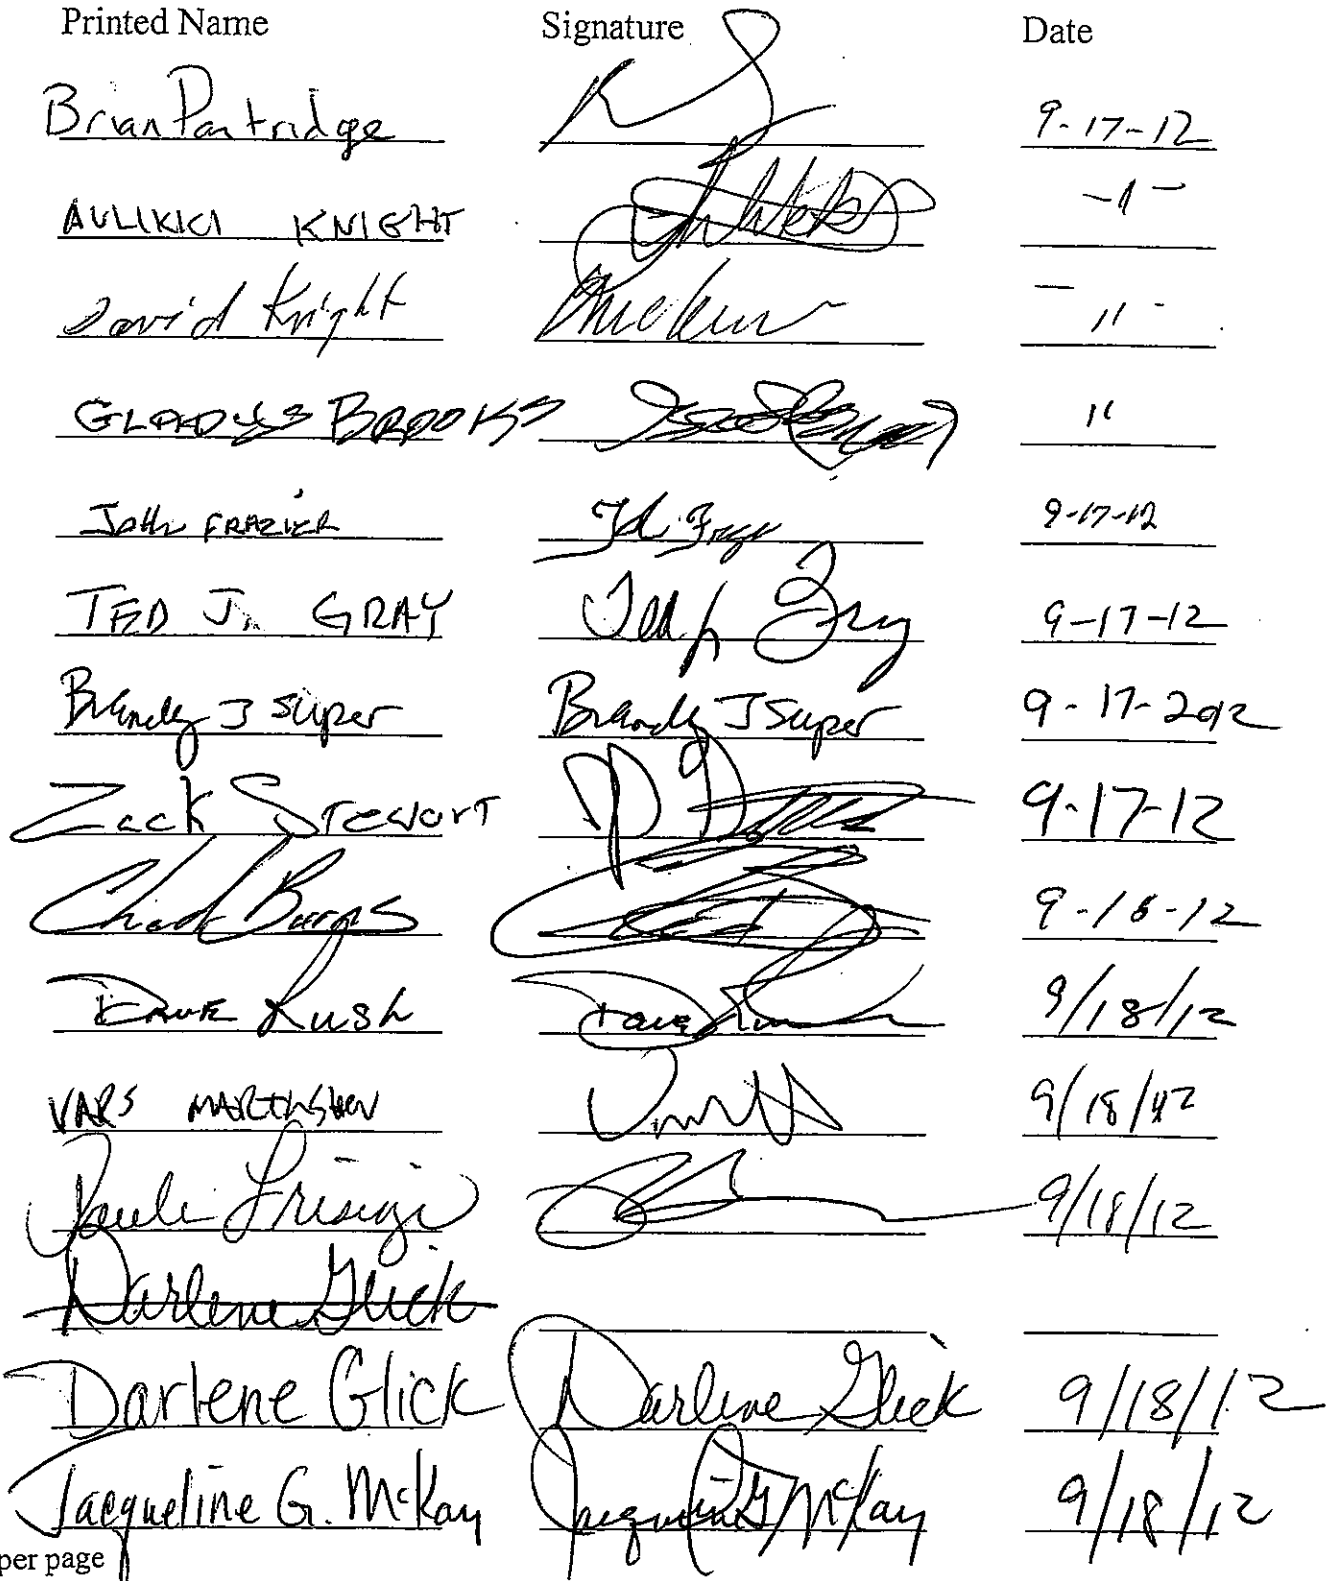 Printed Name Signature Date
Brian Partridge 9-17-12
AULIKKI KNIGHT -"-
David Knight -"-
GLADYS BROOKS "
John FRAZIER 9-17-12
TED J. GRAY Ted J. Gray 9-17-12
Brandy J Super Brandy J Super 9-17-2012
Zack Stewart 9-17-12
Chad Burns 9-18-12
Dave Rush Dave 9/18/12
VARS 9/18/12
9/18/12
Darlene Glick
Darlene Glick Darlene Glick 9/18/12
Jacqueline G. McKay Jacqueline G McKay 9/18/12
per page